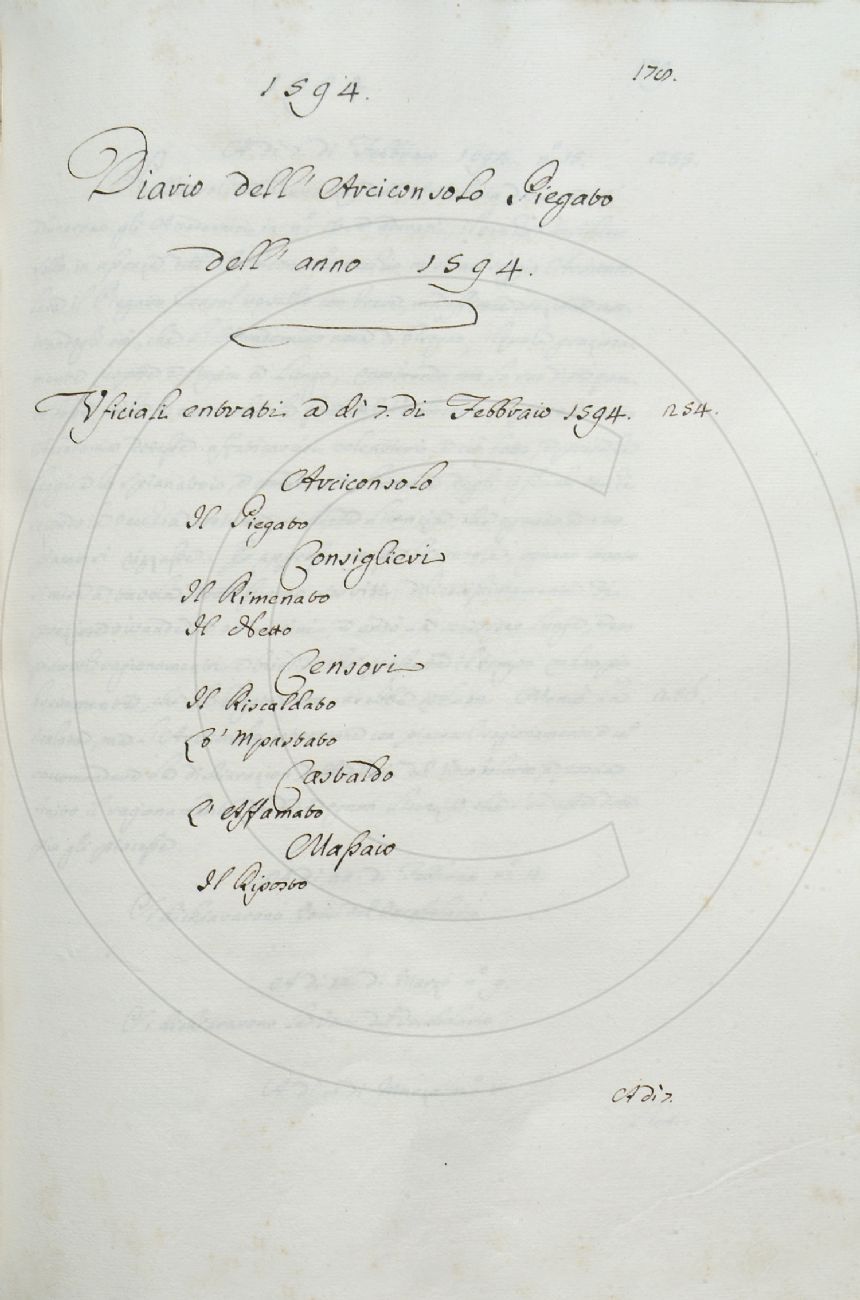 178.
1594.
Diario dell' Arciconsolo Piegato
dell' anno 1594.
Vficiali entrati a dì 2. di Febbraio 1594. 254.
Arciconsolo
Il Piegato
Consiglieri
Il Rimenato
Il Netto
Censori
Il Riscaldato
Lo 'Mpastato
Castaldo
L' Affamato
Massaio
Il Riposto
A dì 2.